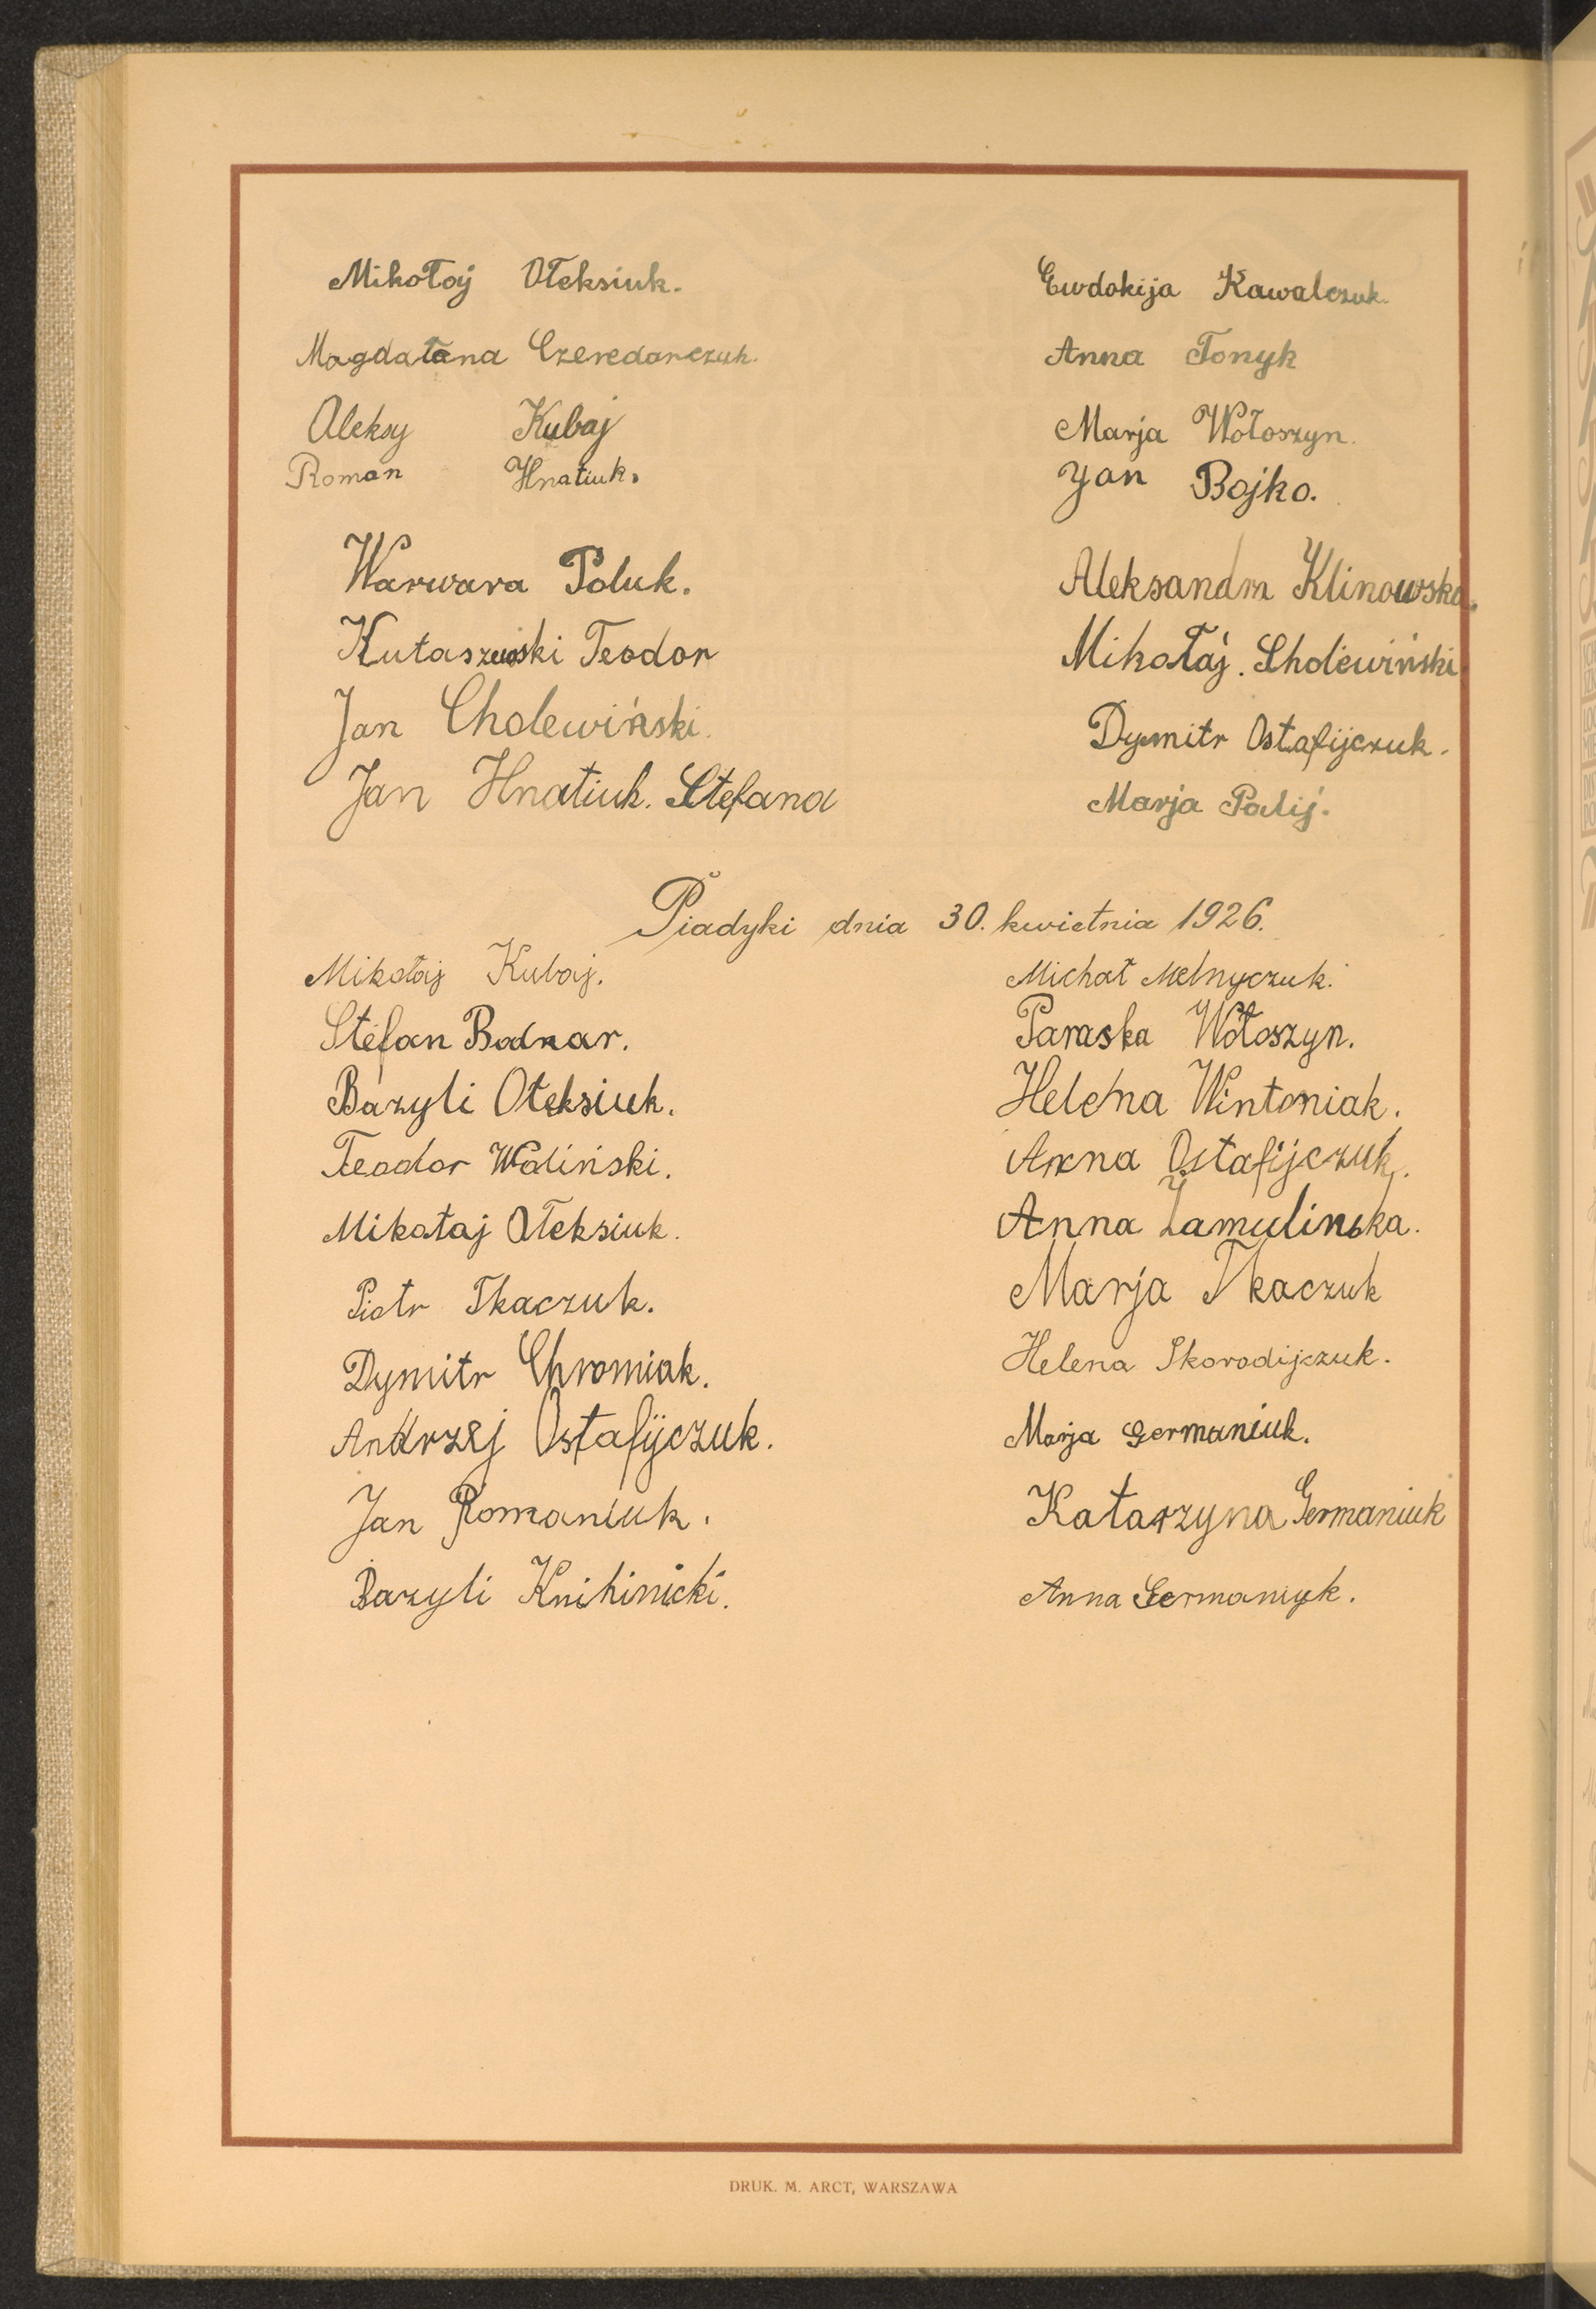 Mikołaj Ołeksiuk.
Magdałana Czeredarczuk.
Aleksy Kubaj
Roman Hnatiuk.
Warwara Poluk.
Kutaszewski Teodor
Jan Cholewiński.
Jan Hnatiuk. Stefana
Ewdokija Kawalczuk.
Anna Tonyk
Marja Wołoszyn.
Jan Bojko.
Aleksandra Klinowska.
Mikołaj. Cholewiński
Dymitr Ostafijczuk.
Marja Palij.
Piadyki dnia 30. kwietnia 1926.
Mikołaj Kubaj.
Stefan Bodnar.
Bazyli Ołeksiuk.
Teodor Woliński.
Mikołaj Ołeksiuk.
Piotr Tkaczuk.
Dymitr Chromiak.
Andrzej Ostafijczuk.
Jan Romaniuk.
Bazyli Knihinicki.
Michał Melnyczuk.
Paraska Wołoszyn.
Helena Wintoniak.
Anna Ostafijczuk.
Anna Zamulinska.
Marja Tkaczuk
Helena Skorodijczuk.
Marja Germaniuk.
Katarzyna Germaniuk
Anna Germaniyk.
DRUK. M. ARCT, WARSZAWA